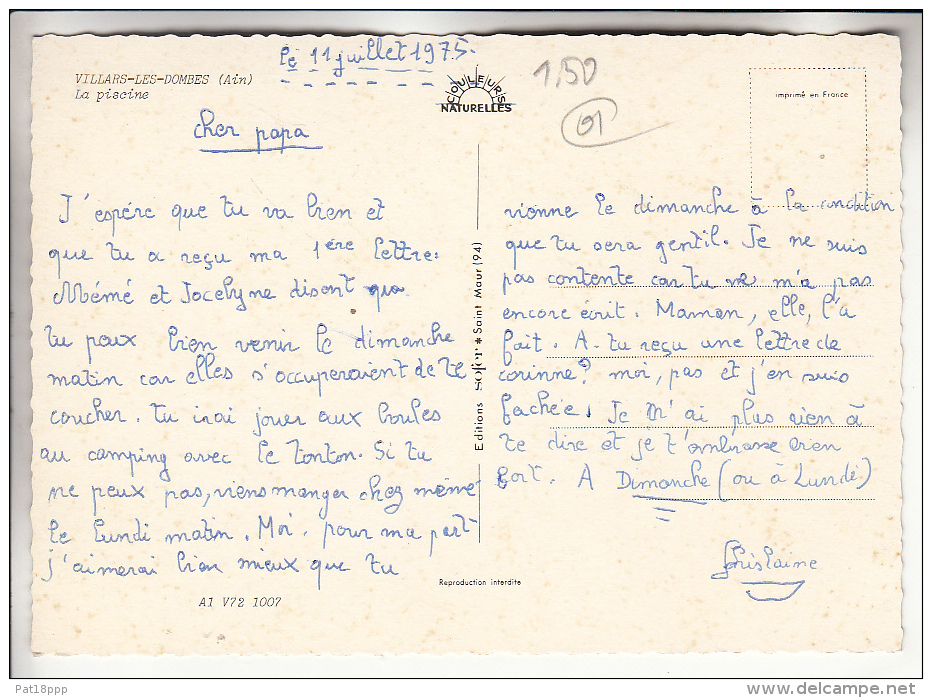 le 11 juillet 1975.
VILLARS-LES-DOMBES (Ain)
La piscine
COULEURS
NATURELLES
1,50
01
imprimé en France
cher papa
J'espére que tu va bien et
que tu a reçu ma 1ére lettre.
Mémé et Jocelyne disent que
tu peux bien venir le dimanche
matin car elles s'occuperaient de te
coucher. tu irai jouer aux boules
au camping avec le tonton. Si tu
ne peux pas, viens manger chez mémé
le lundi matin. Moi, pour ma part
j'aimerai bien mieux que tu
Editions SOFER * Saint Maur (94)
vienne le dimanche à la condition
que tu sera gentil. Je ne suis
pas contente car tu ne m'a pas
encore écrit. Maman, elle, l'a
fait. A-tu reçu une lettre de
corinne? moi, pas et j'en suis
fachée. Je m'ai plus rien à
te dire et je t'embrasse bien
fort. A Dimanche (ou à Lundi)
Ghislaine
Reproduction interdite
A1 V72 1007
Pat18ppp
delcampe.net